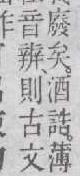 廢矣。酒誥、薄
音辨、則古文